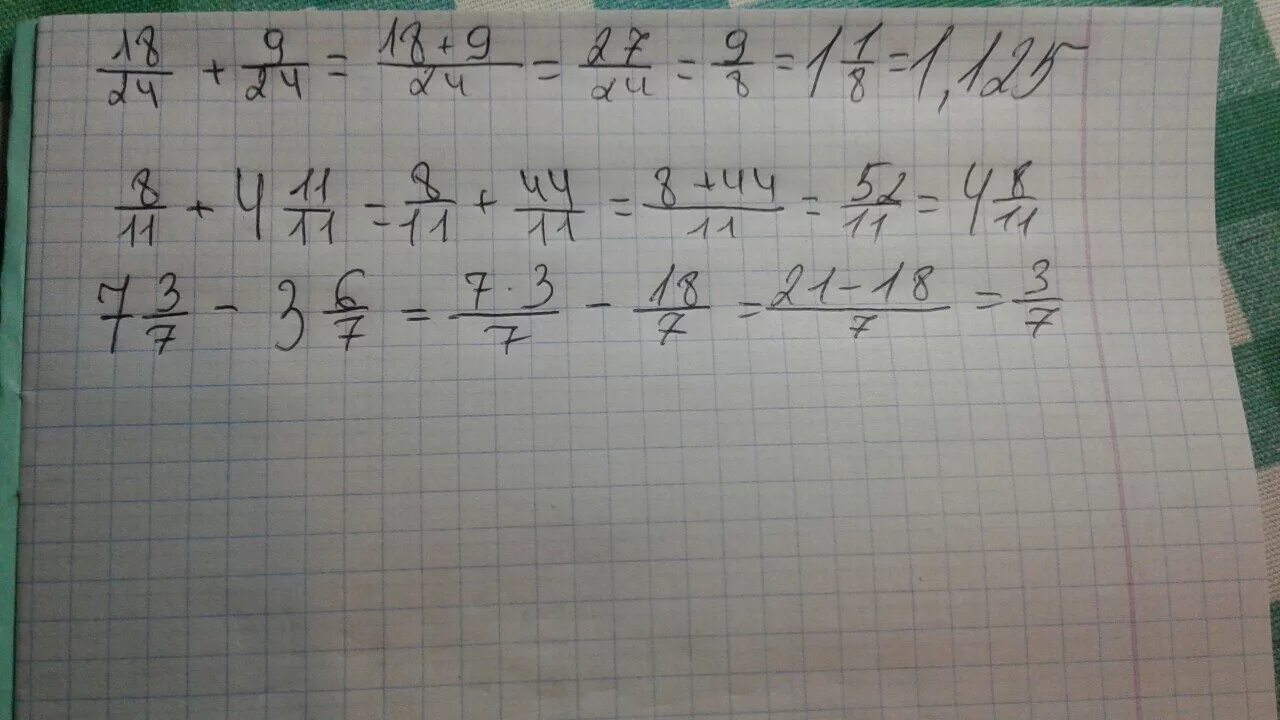 18/24 + 9/24 = 18+9/24 = 27/24 = 9/8 = 1 1/8 = 1,125
8/11 + 4 11/11 = 8/11 + 44/11 = 8+44/11 = 52/11 = 4 8/11
7 3/7 - 3 6/7 = 7·3/7 - 18/7 = 21-18/7 = 3/7